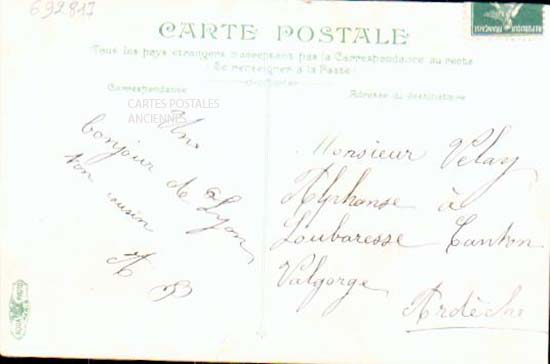 692813
CARTE POSTALE
Tous les pays étrangers n'acceptent pas la Correspondance au recto
(Se renseigner à la Poste)
Correspondance
Adresse du destinataire
CARTES POSTALES
ANCIENNES
Un
bonjour de Lyon
ton cousin
A B
Monsieur Velay
Alphonse à
Loubaresse Canton
Valgorge
Ardèche